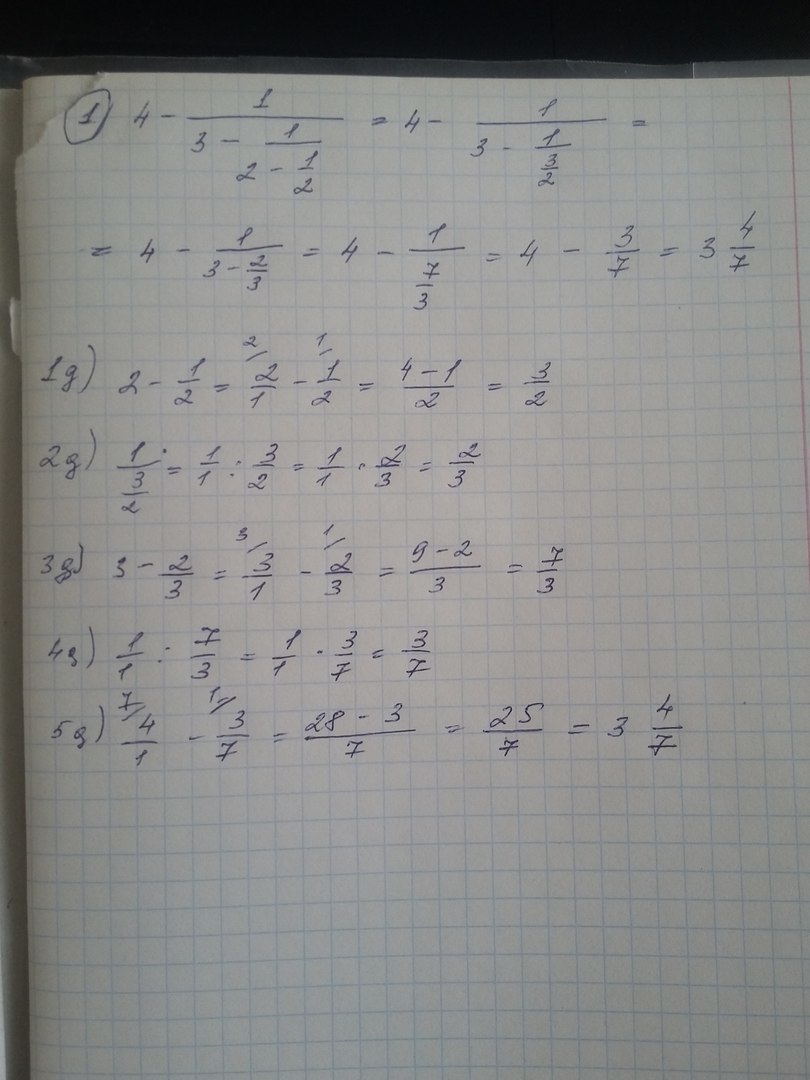 1) 4 - 1/(3 - 1/(2 - 1/2)) = 4 - 1/(3 - 1/(3/2)) =
= 4 - 1/(3 - 2/3) = 4 - 1/(7/3) = 4 - 3/7 = 3 4/7
1д) 2 - 1/2 = 2/1 (2/) - 1/2 (1/) = (4 - 1)/2 = 3/2
2д) 1/(3/2) = 1/1 : 3/2 = 1/1 · 2/3 = 2/3
3д) 3 - 2/3 = 3/1 (3/) - 2/3 (1/) = (9 - 2)/3 = 7/3
4д) 1/1 : 7/3 = 1/1 · 3/7 = 3/7
5д) 4/1 (7/) - 3/7 (1/) = (28 - 3)/7 = 25/7 = 3 4/7